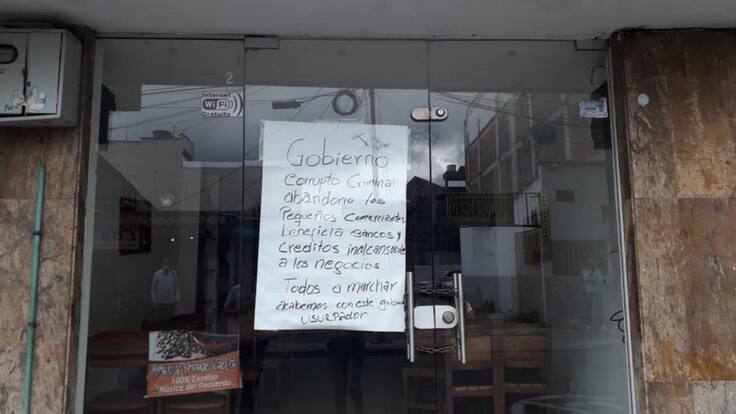 2
Internet
WiFi
Gratuito
Gobierno
Corrupto Criminal
abandono los
Pequeños Comerciantes
beneficia Bancos y
Creditos inalcansable
a los negocios
Todos a marchar
acabemos con este
USURPador
100% Excelso
Música del Recuerdo